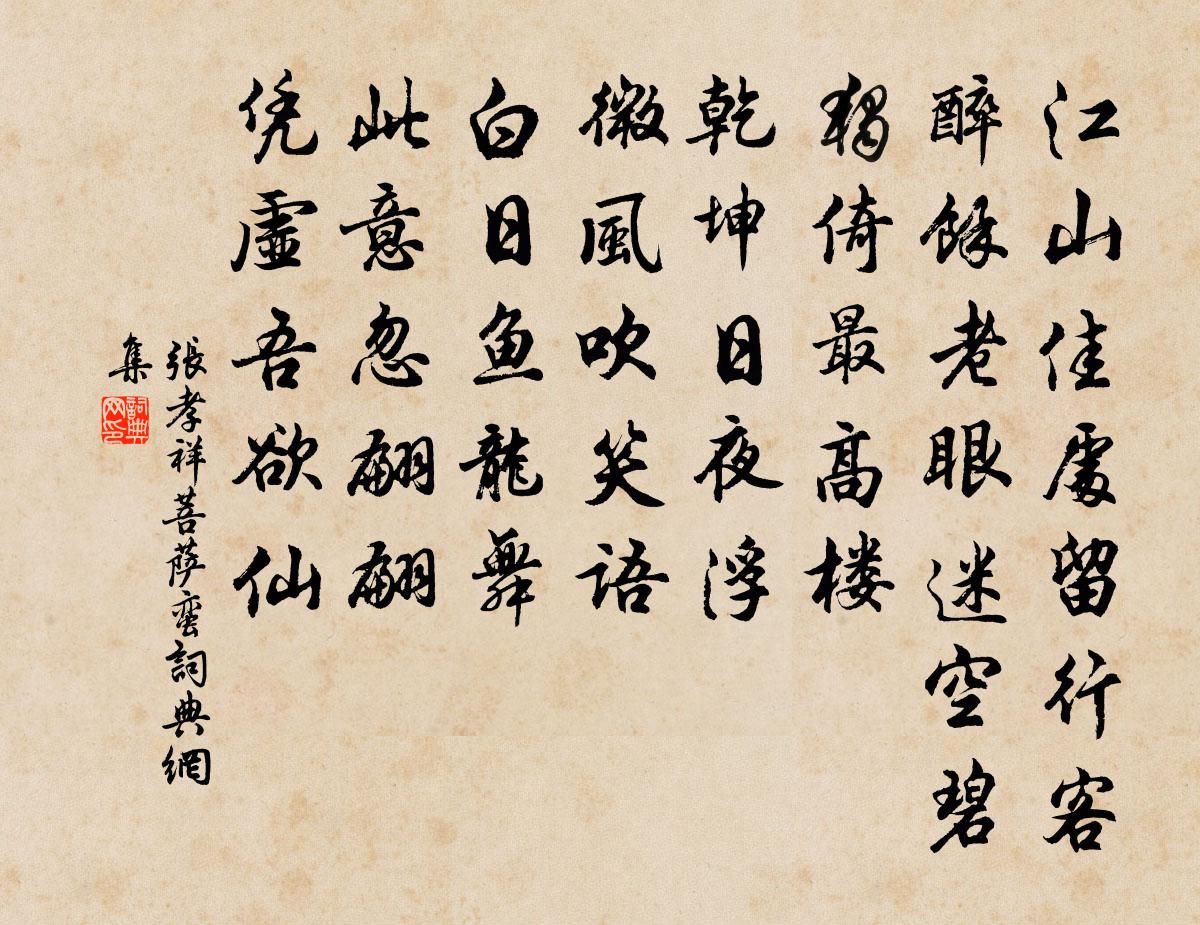 江山佳處留行客
醉餘老眼迷空碧
獨倚最高楼
乾坤日夜浮
微風吹笑語
白日鱼龍舞
此意忽翩翩
凭虛吾欲仙
張孝祥菩萨蛮詞典網
集
詞典
网印